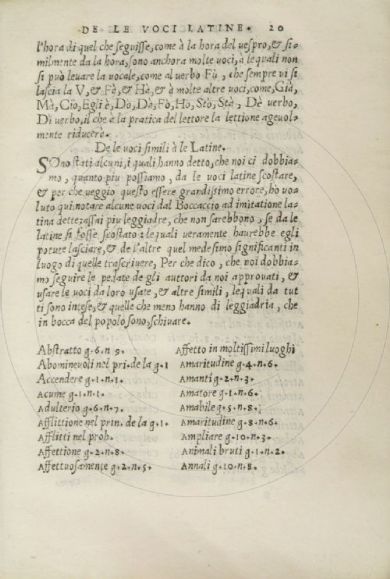 DE LE VOCI LATINE. 20
l'hora di quel che seguisse, come à la hora del vespro, & si-
milmente da la hora, sono anchora molte voci, à le quali non
si può levare la vocale, come al verbo Fù, che sempre vi si
lascia la V, & Fè, & Hà, & à molte altre voci, come, Già,
Mà, Ciò, Egli è, Dò, Dà, Fò, Hò, Stò, Stà, Dè verbo,
Di verbo, il che è la pratica del lettore la lettione agevol-
mente riducerè.
De le voci simili à le Latine.
SOno stati alcuni, i quali hanno detto, che noi ci dobbia-
mo, quanto piu possiamo, da le voci latine scostare,
& per che veggio questo essere grandissimo errore, ho vo-
luto qui notare alcune voci dal Boccaccio ad imitatione la-
tina dette, assai piu leggiadre, che non sarebbono, se da le
latine si fosse scostato: le quali veramente haurebbe egli
potute lasciare, & de l'altre quel medesimo significanti in
luogo di quelle trascrivere, Per che dico, che voi dobbia-
mo seguire le pedate de gli auttori da noi approvati, &
usare le voci da loro usate, & altre simili, le quali da tut
ti sono intese, & quelle che meno hanno di leggiadria, che
in bocca del popolo sono, schivare.
Abstratto g. 6. n. 9.
Abominevoli nel pri. de la g. 1
Accendere g. 1. n. 1.
Acume g. 1. n. 1.
Adulterio g. 6. n. 7.
Afflittione nel prin. de la g. 1.
Afflitti nel proh.
Affettione g. 2. n. 8.
Affettuosamente g. 2. n. 5.
Affetto in moltissimi luoghi
Amaritudine g. 4. n. 6.
Amanti g. 2. n. 3.
Amatore g. 1. n. 6.
Amabile g. 5. n. 8.
Amaritudine g. 8. n. 6.
Ampliare g. 10. n. 3.
Animali bruti g. 1. n. 2.
Annali g. 10. n. 8.